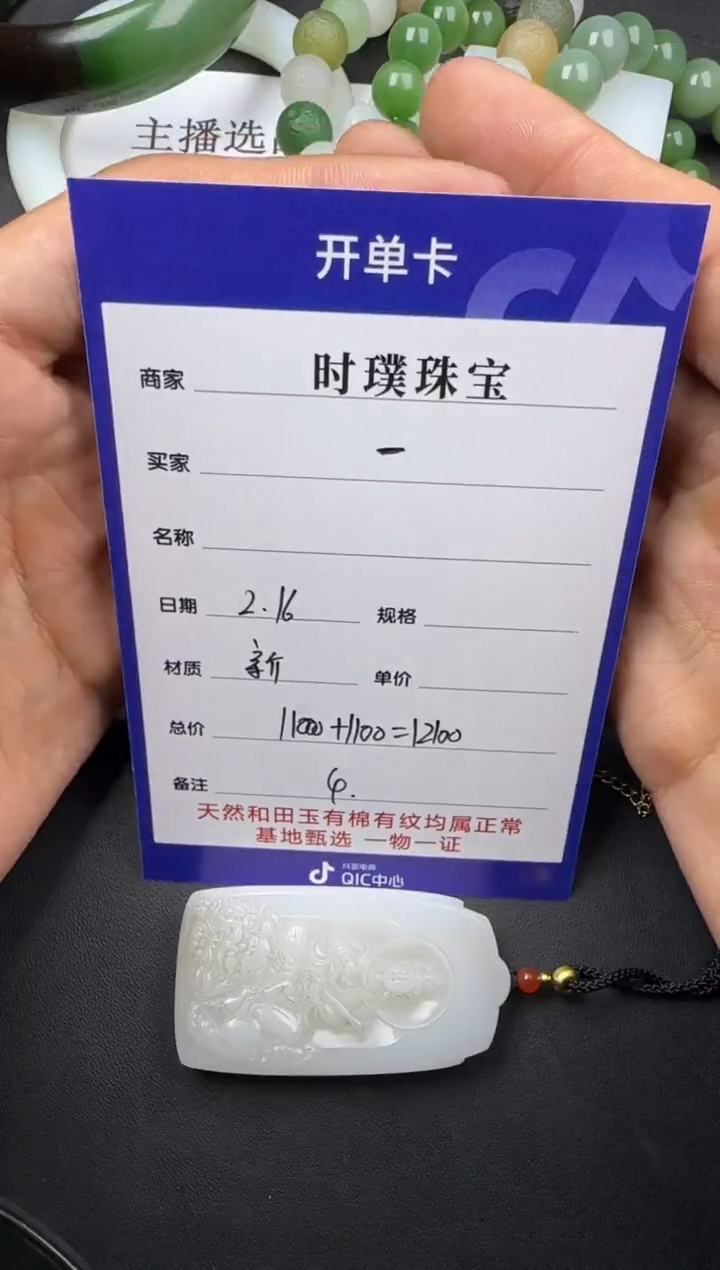 主播选
开单卡
商家 时璞珠宝
买家 一
名称
日期 2.16 规格
材质 新 单价
总价 11000+1100=12100
备注 φ.
天然和田玉有棉有纹均属正常
基地甄选 一物一证
抖音电商
QIC中心